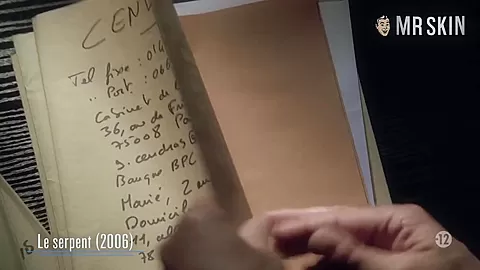 MR SKIN
CEN
Tel fixe : 01
" Port. : 06
Cabinet de
36, av de F
75008 Pa
j. cendras@
Banque BPC
Marié, 2
Domicil
78
Le serpent (2006)
-12